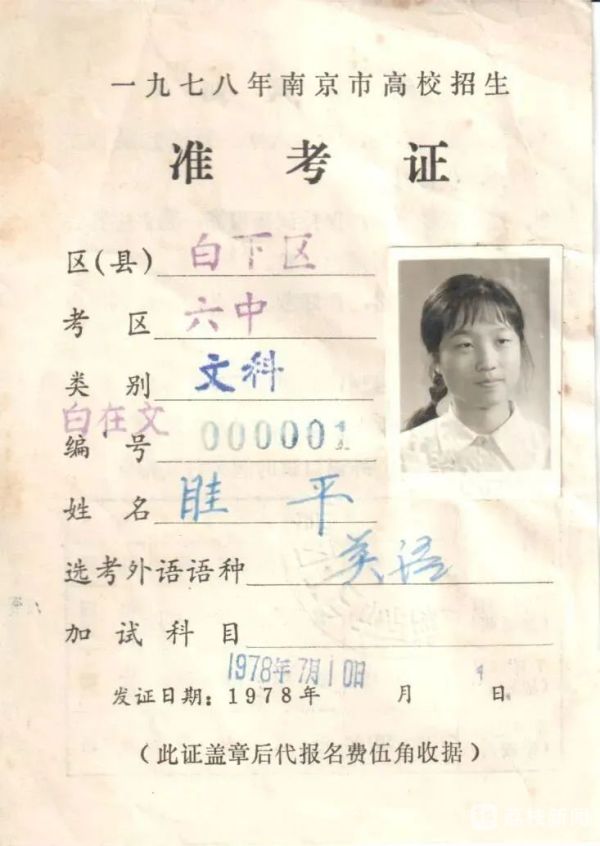 一九七八年南京市高校招生
准考证
区(县) 白下区
考区 六中
类别 文科
白在文
编号 000001
姓名 眭平
选考外语语种 英语
加试科目
1978年7月10日
发证日期：1978年 月 日
(此证盖章后代报名费伍角收据)
荔枝新闻